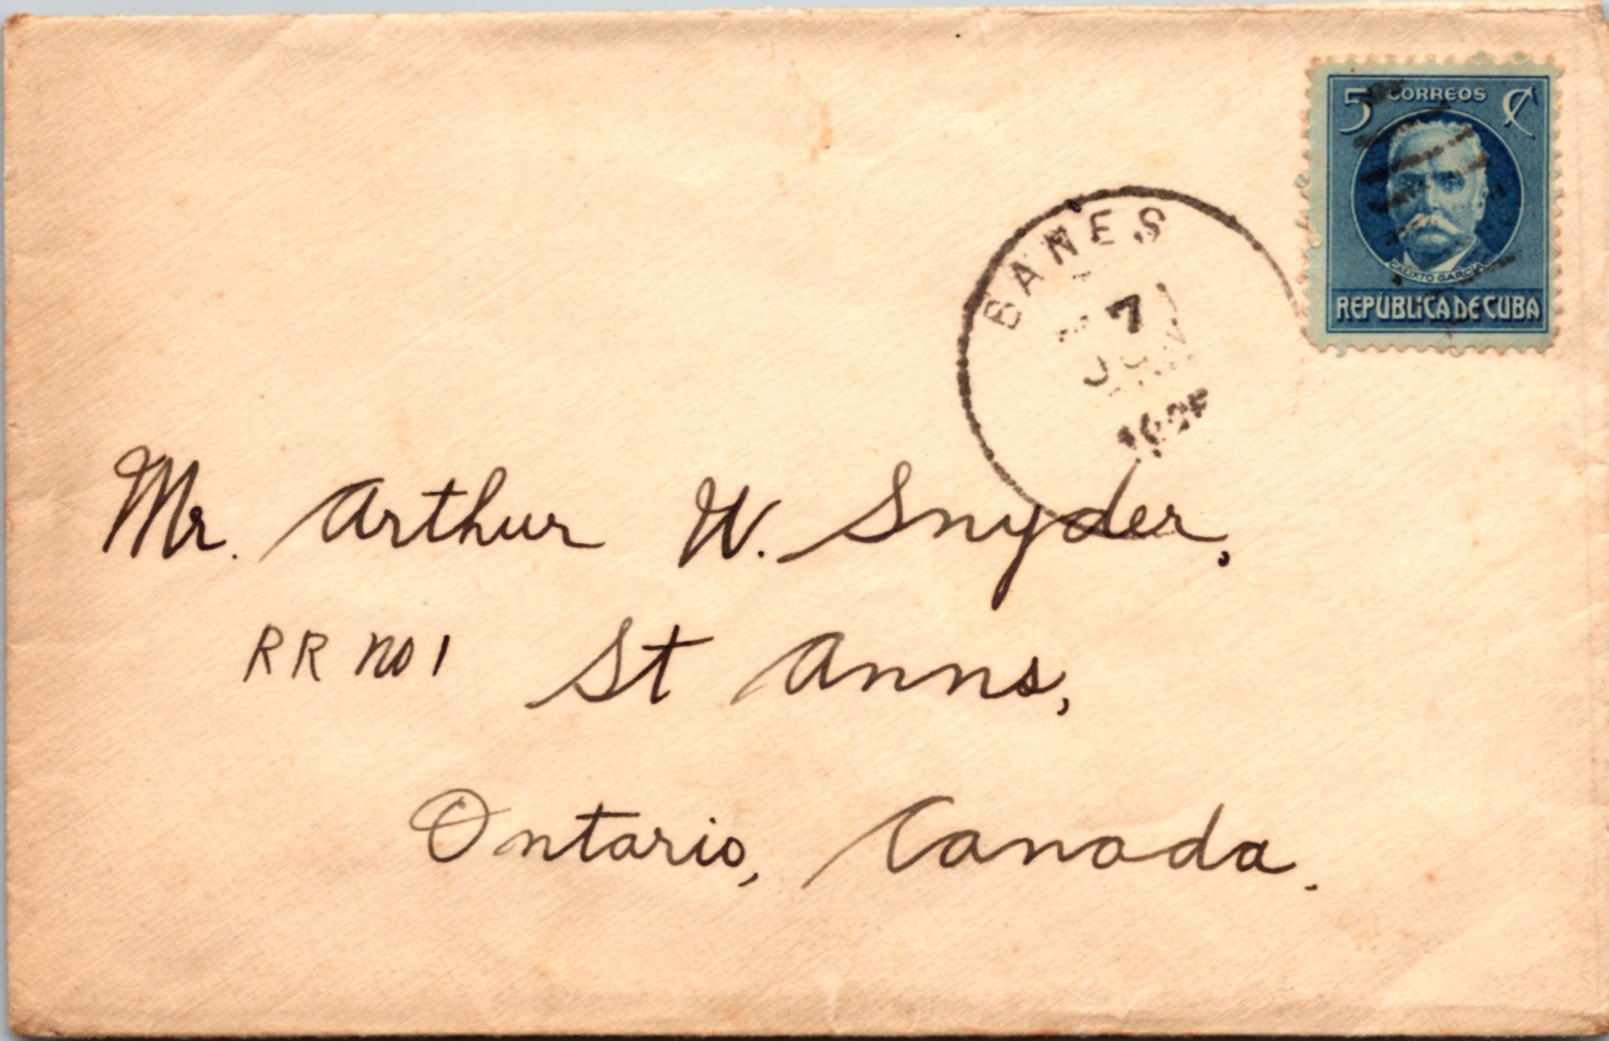 5 CORREOS ¢
CALIXTO GARCIA
REPÚBLICA DE CUBA
BANES
7
Mr. Arthur W. Snyder,
RR no 1 St Anns,
Ontario, Canada.